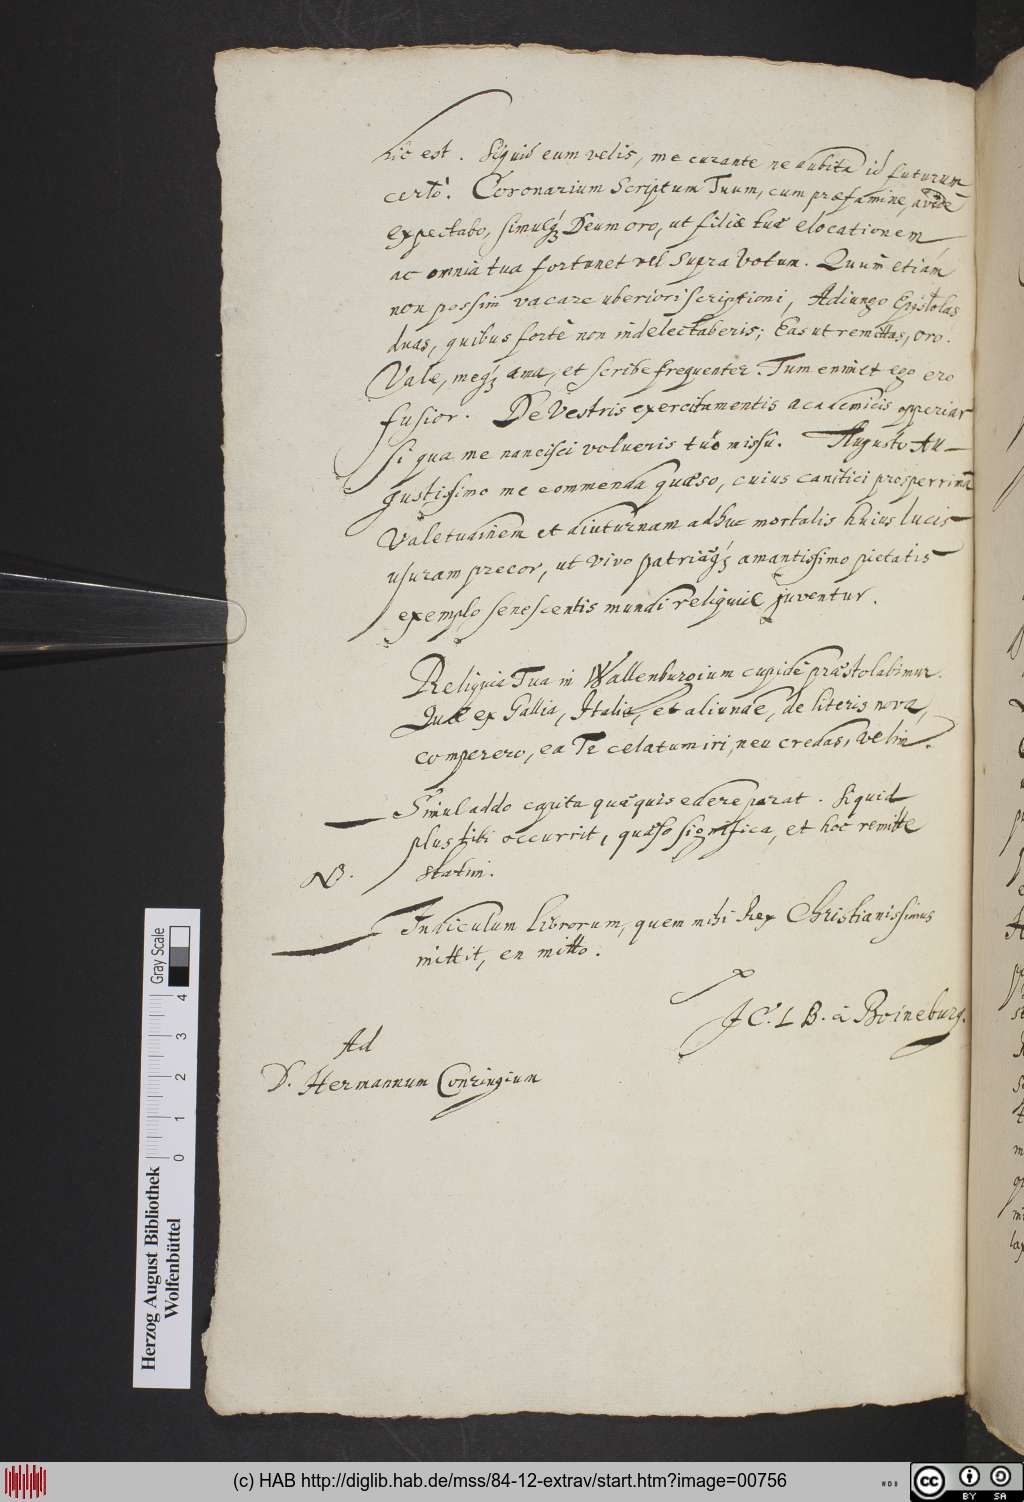 hic est. Siquid eum velis, me curante ne dubita id futurum
certò. Coronarium Scriptum Tuum, cum præfamine, avidè
expectabo, simulq́ Deum oro, ut filiæ tuæ elocationem
ac omnia tua fortunet vel supra Votum. Quum etiam
non possim vacare uberiori scriptioni, Adiungo Epistolas
duas, quibus fortè non indelectaberis; Eas ut remittas, oro.
Vale, meq́ ama, et scribe frequenter. Tum enim et ego ero
fusior. De Vestris exercitamentis academicis opperiar
si qua me nancisci volueris tuo missu. Augusto Au-
gustissimo me commenda quæso, cuius canitiei prosperrimā
Valetudinem et diuturnam adhuc mortalis huius lucis
usuram precor, ut vivo patriæq́ amantissimo pietatis
exemplo senescentis mundi reliquiæ juventur.
Reliquia Tua in Wallenburgium cupidè præstolabimur.
Quæ ex Gallia, Italia, et aliunde, de literis nova,
comperero, ea Te celatum iri, neu credas, velim.
Simul addo capita quæ quis edere parat. Siquid
plus tibi occurrit, quæso significa, et hoc remitte
NB. statim.
Indiculum librorum, quem mihi Rex Christianissimus
mittit, en mitto.
J C. L B. à Boineburg.
Ad
D. Hermannum Conringium
Herzog August Bibliothek
Wolfenbüttel
Gray Scale
0 1 2 3 4
(c) HAB http://diglib.hab.de/mss/84-12-extrav/start.htm?image=00756
cc BY SA